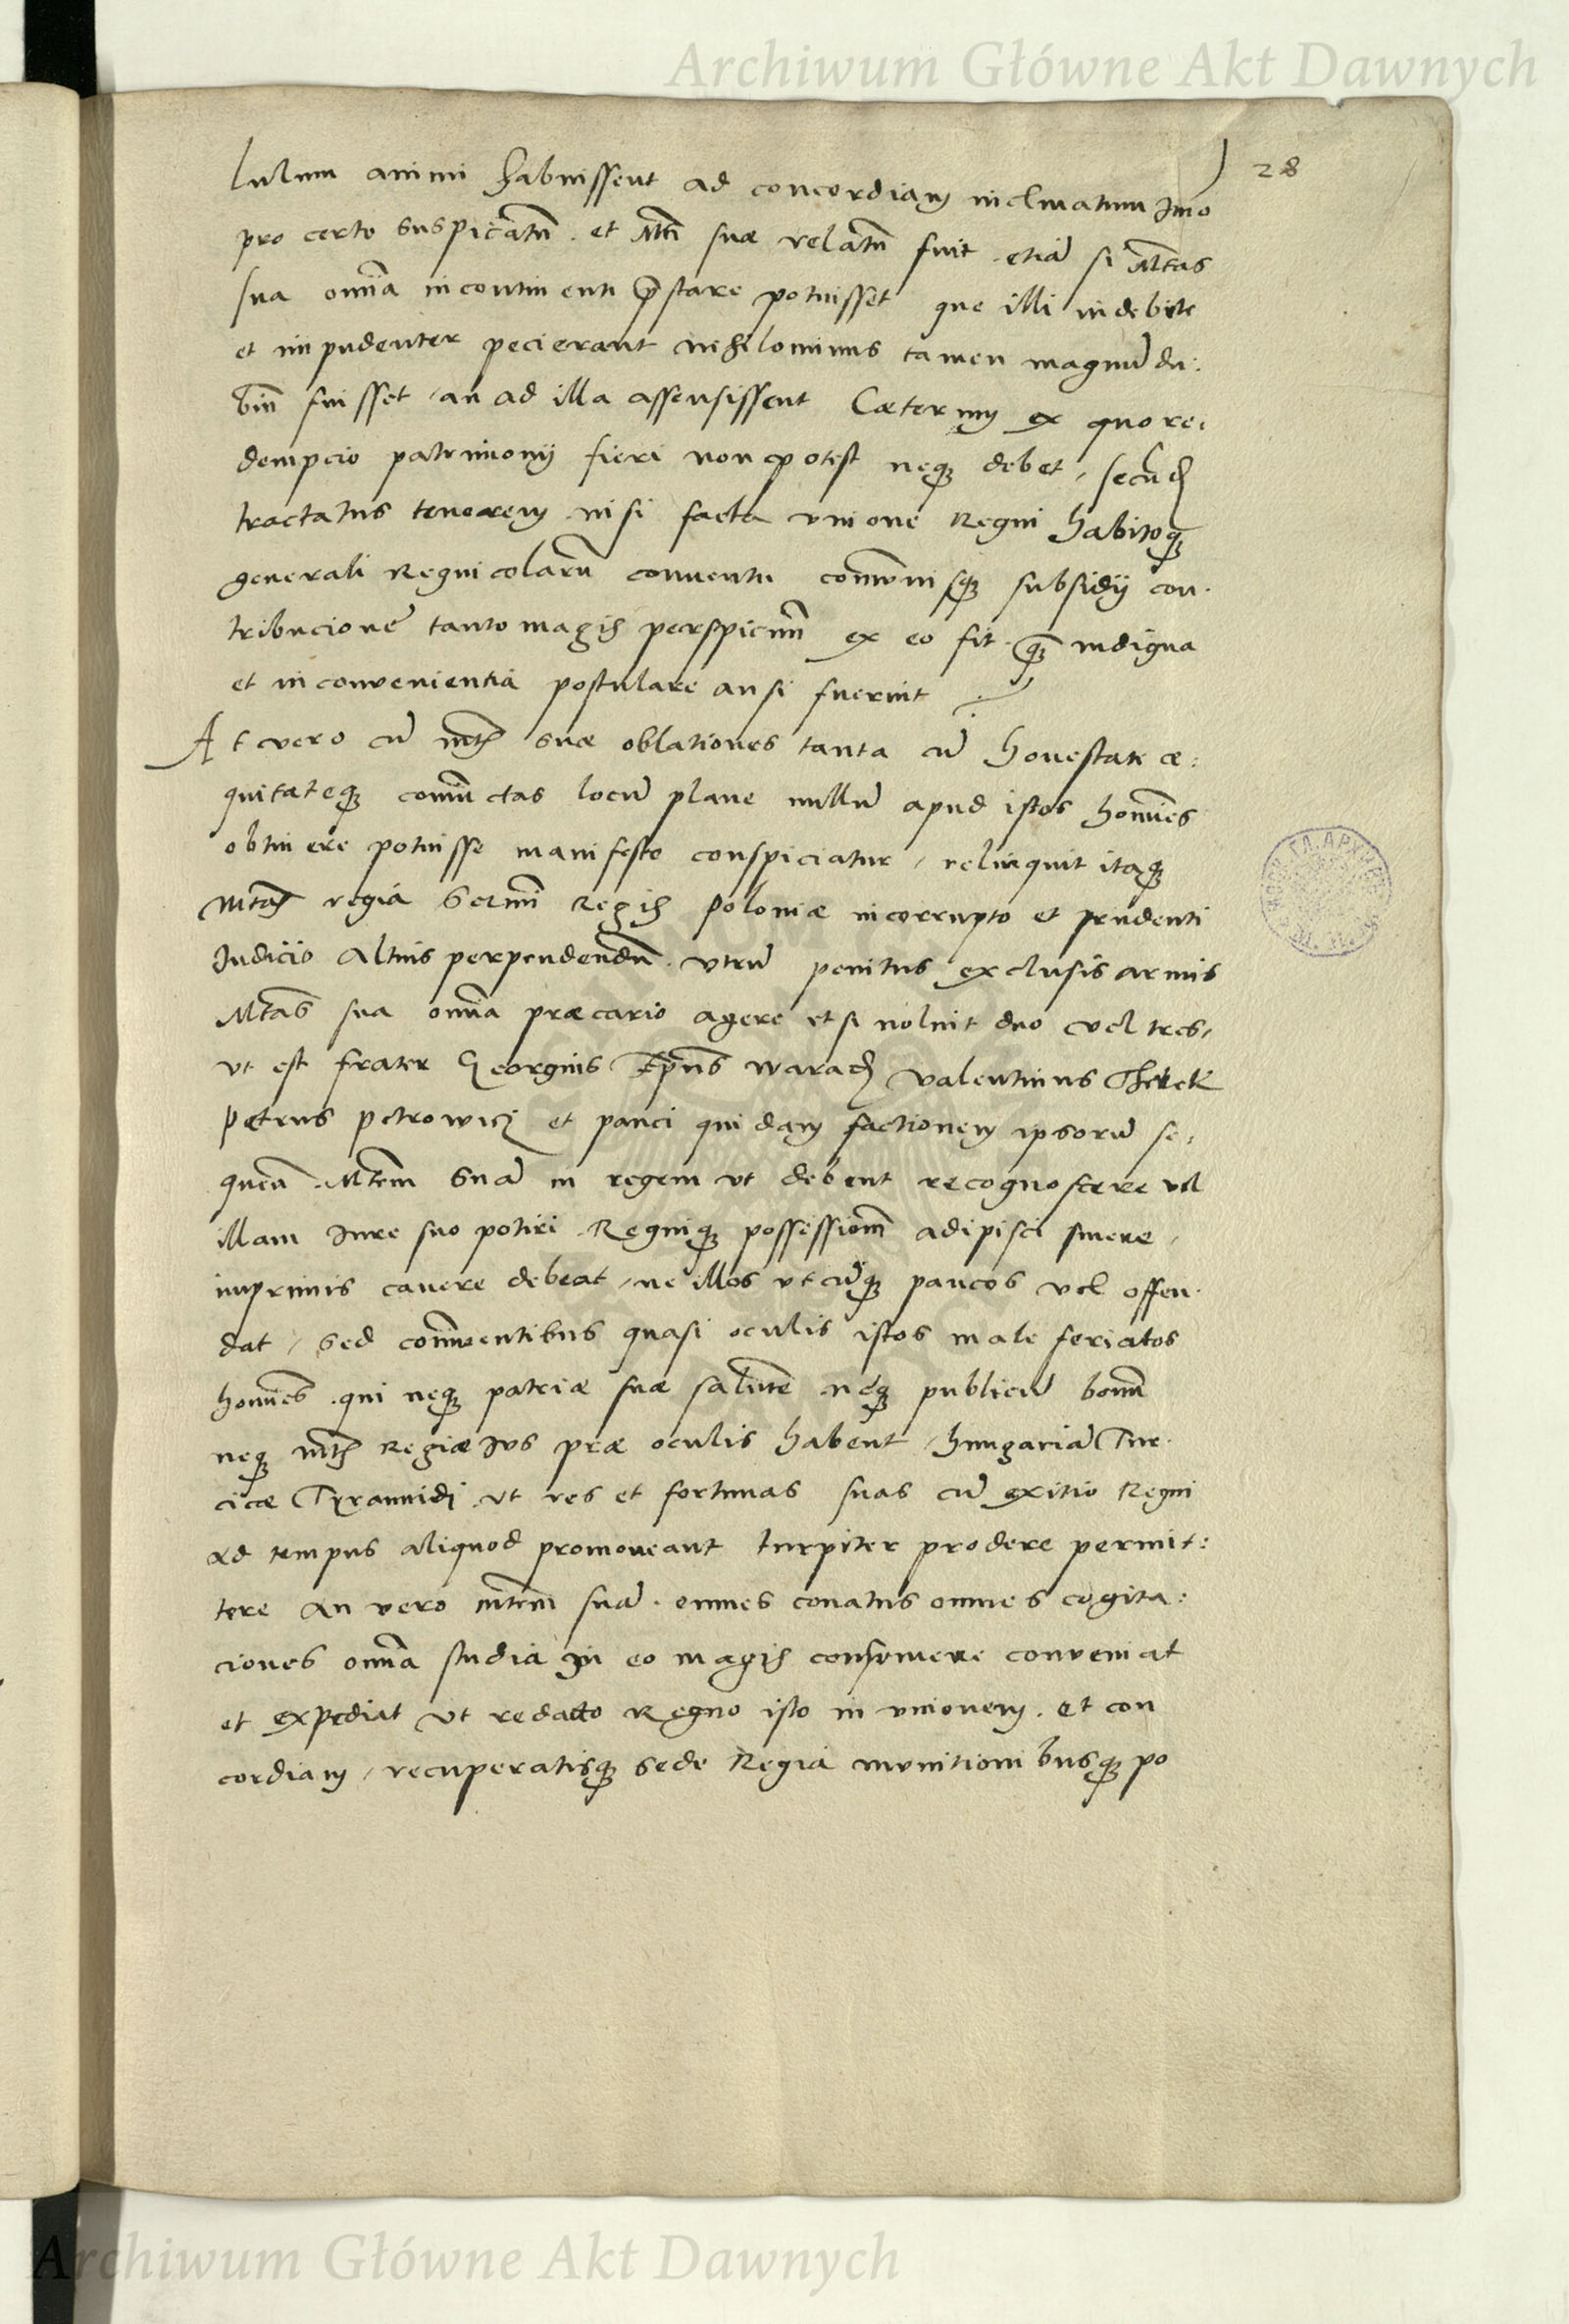 Archiwum Główne Akt Dawnych
28
lulum animi habuissent ad concordiam inclinatum Imo
pro certo suspicatũ . et Mti suæ relatũ fuit . etiã si Mtas
sua omĩa incontinenti p̃stare potuisset que illi indebite
et impudenter pecierant nihilominus tamen magnũ du:
biũ fuisset / an ad illa assensissent Cæterum ex quo re:
dempcio patrimonij fieri non potest neq; debet / secũd
tractatus tenorem nisi facta vnione Regni habitoq;
generali Regnicolarũ conuentu cõmunisq; subsidij con-
tribucione tanto magis perspicuũ ex eo fit . q̃ indigna
et inconvenientia postulare ausi fuerint
At vero cũ Mtis suæ oblationes tanta cũ honestate æ:
quitateq; coniũctas locũ plane nullũ apud istos homines
obtinere potuisse manifesto conspiciatur / relinquit itaq;
Mtas regia Sermi Regis Poloniæ incorrupto et prudenti
Iudicio altius perpendendũ . vtrũ penitus exclusis armis
Mtas sua omĩa præcario agere et si noluit duo vel tres /
vt est frater Georgius Ep̃us Warad valentinus Therek
Petrus petrowicz et pauci quidam factionem ipsorũ se:
quẽtũ . Mtem suã in regem vt debent recognoscere vel
illam Iure suo potiri . Regniq; possessionẽ adipisci sinere /
inprimis cavere debeat / ne illos vtcũq; paucos vel offen-
dat / sed conniventibus quasi oculis istos male feriatos
homines . qui neq; patriæ suæ salutẽ neq; publicũ bonũ
neq; Mtis Regiæ Ius præ oculis habent / hungariã Tur-
cicæ Tyrannidi vt res et fortunas suas cũ exitio Regni
ad tempus aliquod promoveant turpiter prodere permit:
tere an vero Mtem suã . omnes conatus omnes cogita:
ciones omĩa studia in eo magis consumere conveniat
et expediat vt redacto Regno isto in vnionem . et con
cordiam / recuperatisq; sede Regia munitionibusq; po
Archiwum Główne Akt Dawnych